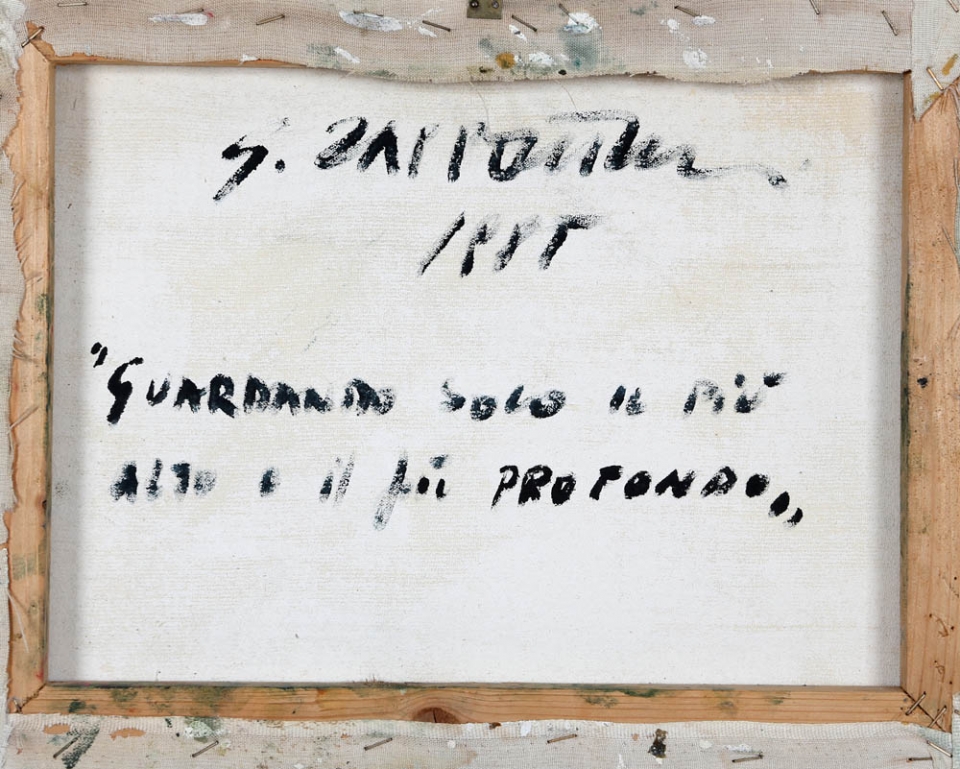 "GUARDANDO SOLO IL PIÙ
ALTO E il più PROFONDO"